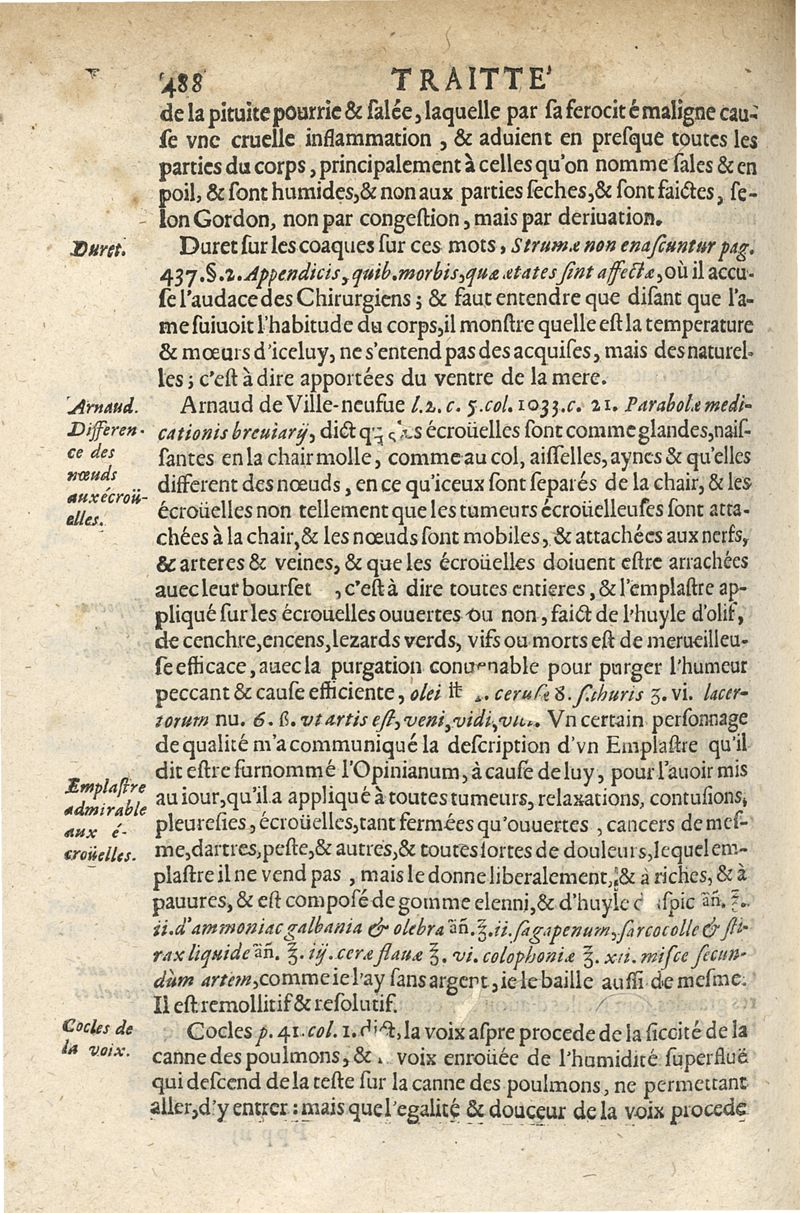 488 TRAITTE'
de la pituite pourrie & salée, laquelle par sa ferocité maligne cau-
se vne cruelle inflammation, & aduient en presque toutes les
parties du corps, principalement à celles qu'on nomme sales & en
poil, & sont humides, & non aux parties seches, & sont faictes, se-
lon Gordon, non par congestion, mais par deriuation.
Duret.
Duret sur les coaques sur ces mots, Strumæ non enascuntur pag.
437. §. 2. Appendicis, quib. morbis, quæ ætates sint affectæ, où il accu-
se l'audace des Chirurgiens; & faut entendre que disant que l'a-
me suiuoit l'habitude du corps, il monstre quelle est la temperature
& mœurs d'iceluy, ne s'entend pas des acquises, mais des naturel-
les; c'est à dire apportées du ventre de la mere.
Arnaud.
Differen-
ce des
nœuds
aux écroü-
elles.
Arnaud de Ville-neufue l. 2. c. 5. col. 1033. c. 21. Parabolæ medi-
cationis breuiarij, dict écroüelles sont comme glandes, nais-
santes en la chair molle, comme au col, aisselles, aynes & qu'elles
different des nœuds, en ce qu'iceux sont separés de la chair, & les
écroüelles non tellement que les tumeurs écroüelleuses sont atta-
chées à la chair, & les nœuds sont mobiles, & attachées aux nerfs,
& arteres & veines, & que les écroüelles doiuent estre arrachées
auec leur bourset , c'est à dire toutes entieres, & l'emplastre ap-
pliqué sur les écrouelles ouuertes ou non, faict de l'huyle d'olif,
de cenchre, encens, lezards verds, vifs ou morts est de merueilleu-
se efficace, auec la purgation conuenable pour purger l'humeur
peccant & cause efficiente, olei ceruse thuris ʒ. vi. lacer-
torum nu. 6. ß. vt artis est, veni, vidi, Vn certain personnage
de qualité m'a communiqué la description d'vn Emplastre qu'il
dit estre surnommé l'Opinianum, à cause de luy, pour l'auoir mis
Emplastre
admirable
aux é-
croüelles.
au iour, qu'il a appliqué à toutes tumeurs, relaxations, contusions,
pleuresies, écroüelles, tant fermées qu'ouuertes, cancers de mes-
me, dartres, peste, & autres, & toutes sortes de douleurs, lequel em-
plastre il ne vend pas, mais le donne liberalement, & à riches, & à
pauures, & est composé de gomme elenni, & d'huyle aspic añ. ℥.
ii. d'ammoniac galbania & olebra añ. ℥. ii. sagapenum, sarcocolle & sti-
rax liquide añ. ℥. iij. ceræ flauæ ℥. vi. colophoniæ ℥. xii. misce secun-
dùm artem, comme ie l'ay sans argent, ie le baille aussi de mesme.
Il est remollitif & resolutif.
Cocles de
la voix.
Cocles p. 41. col. 1. dict, la voix aspre procede de la siccité de la
canne des poulmons, & voix enroüée de l'humidité superfluë
qui descend de la teste sur la canne des poulmons, ne permettant
aller, d'y entrer: mais que l'egalité & douceur de la voix procede